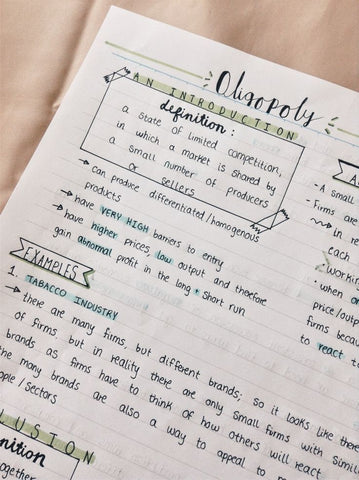 Oligopoly
AN INTRODUCTION
definition:
a state of limited competition,
in which a market is shared by
a small number of producers
or sellers
→ can produce differentiated/homogenous
products
→ have VERY HIGH barriers to entry
→ have higher prices, low output and therefore
gain abnormal profit in the long + short run
EXAMPLES
1. TOBACCO INDUSTRY
→ there are many firms, but different brands; so it looks like there
of firms. but in reality there are only small firms with
brands as firms have to think of how others will react.
the many brands are also a way to appeal to
/sectors
A small
Firms are
in
each
when
price/
firms
to react